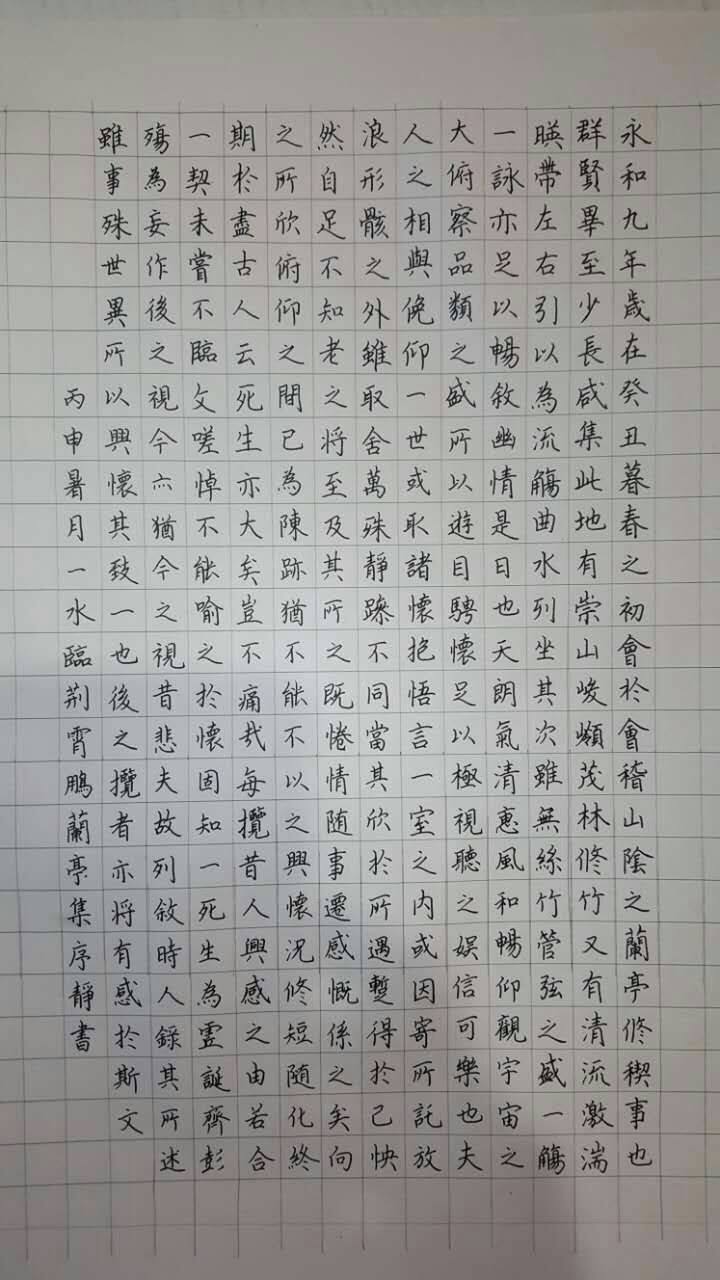 永和九年歲在癸丑暮春之初會於會稽山陰之蘭亭修稧事也
群賢畢至少長咸集此地有崇山峻嶺茂林修竹又有清流激湍
暎帶左右引以為流觴曲水列坐其次雖無絲竹管弦之盛一觴
一詠亦足以暢敘幽情是日也天朗氣清惠風和暢仰觀宇宙之
大俯察品類之盛所以遊目騁懷足以極視聽之娛信可樂也夫
人之相與俛仰一世或取諸懷抱悟言一室之內或因寄所託放
浪形骸之外雖取舍萬殊靜躁不同當其欣於所遇蹔得於己怏
然自足不知老之將至及其所之既惓情随事遷感慨係之矣向
之所欣俯仰之間已為陳跡猶不能不以之興懷況修短随化終
期於盡古人云死生亦大矣豈不痛哉每攬昔人興感之由若合
一契未嘗不臨文嗟悼不能喻之於懷固知一死生為虛誕齊彭
殤為妄作後之視今亦猶今之視昔悲夫故列敘時人錄其所述
雖事殊世異所以興懷其致一也後之攬者亦將有感於斯文
丙申暑月一水臨荆霄鵬蘭亭集序靜書